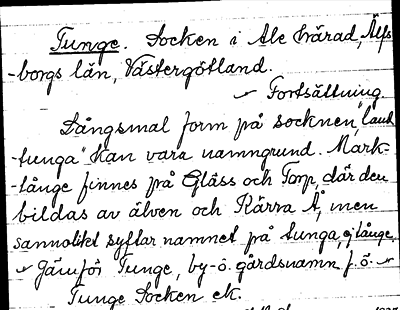 Tunge. Socken i Ale härad, Älfs-
-borgs län, Västergötland.
✓ Fortsättning.
Långsmal form på socknen, "land
-tunga" kan vara namngrund. Mark-
-tånge finnes på Gläss och Torp, där den
bildas av älven och Kärra Å, men
sannolikt syftar namnet på tunga, ej tånge.
✓ Jämför Tunge, by- o. gårdsnamn f. ö. ✓
Tunge Socken etc.